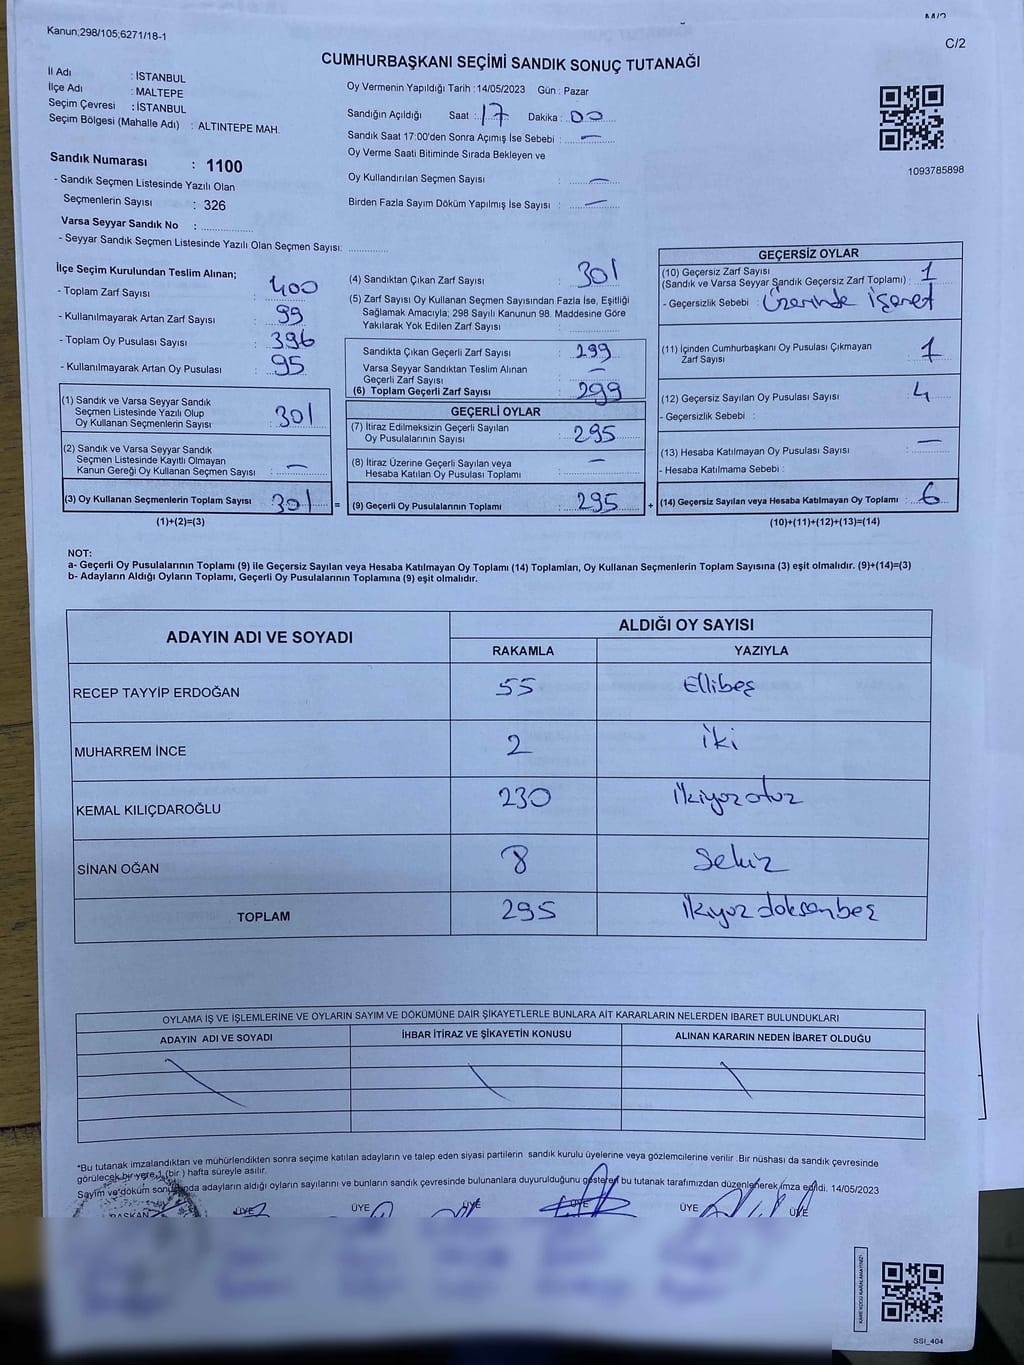 Kanun;298/105;6271/18-1
C/2
CUMHURBAŞKANI SEÇİMİ SANDIK SONUÇ TUTANAĞI
İl Adı : İSTANBUL
İlçe Adı : MALTEPE
Seçim Çevresi : İSTANBUL
Seçim Bölgesi (Mahalle Adı) : ALTINTEPE MAH.
Oy Vermenin Yapıldığı Tarih : 14/05/2023 Gün : Pazar
Sandığın Açıldığı Saat : 17 Dakika : 00
Sandık Saat 17:00'den Sonra Açımış İse Sebebi : —
Oy Verme Saati Bitiminde Sırada Bekleyen ve
Oy Kullandırılan Seçmen Sayısı : —
Birden Fazla Sayım Döküm Yapılmış İse Sayısı : —
1093785898
Sandık Numarası : 1100
- Sandık Seçmen Listesinde Yazılı Olan
Seçmenlerin Sayısı : 326
Varsa Seyyar Sandık No :
- Seyyar Sandık Seçmen Listesinde Yazılı Olan Seçmen Sayısı:
İlçe Seçim Kurulundan Teslim Alınan;
- Toplam Zarf Sayısı : 400
- Kullanılmayarak Artan Zarf Sayısı : 99
- Toplam Oy Pusulası Sayısı : 396
- Kullanılmayarak Artan Oy Pusulası : 95
(1) Sandık ve Varsa Seyyar Sandık
Seçmen Listesinde Yazılı Olup
Oy Kullanan Seçmenlerin Sayısı : 301
(2) Sandık ve Varsa Seyyar Sandık
Seçmen Listesinde Kayıtlı Olmayan
Kanun Gereği Oy Kullanan Seçmen Sayısı : —
(3) Oy Kullanan Seçmenlerin Toplam Sayısı 301 =
(1)+(2)=(3)
(4) Sandıktan Çıkan Zarf Sayısı : 301
(5) Zarf Sayısı Oy Kullanan Seçmen Sayısından Fazla İse, Eşitliği
Sağlamak Amacıyla; 298 Sayılı Kanunun 98. Maddesine Göre
Yakılarak Yok Edilen Zarf Sayısı :
Sandıkta Çıkan Geçerli Zarf Sayısı : 299
Varsa Seyyar Sandıktan Teslim Alınan
Geçerli Zarf Sayısı : —
(6) Toplam Geçerli Zarf Sayısı : 299
GEÇERLİ OYLAR
(7) İtiraz Edilmeksizin Geçerli Sayılan
Oy Pusulalarının Sayısı : 295
(8) İtiraz Üzerine Geçerli Sayılan veya
Hesaba Katılan Oy Pusulası Toplamı : —
(9) Geçerli Oy Pusulalarının Toplamı : 295 +
GEÇERSİZ OYLAR
(10) Geçersiz Zarf Sayısı
(Sandık ve Varsa Seyyar Sandık Geçersiz Zarf Toplamı) : 1
- Geçersizlik Sebebi : Üzerinde işaret
(11) İçinden Cumhurbaşkanı Oy Pusulası Çıkmayan
Zarf Sayısı : 1
(12) Geçersiz Sayılan Oy Pusulası Sayısı : 4
- Geçersizlik Sebebi :
(13) Hesaba Katılmayan Oy Pusulası Sayısı : —
- Hesaba Katılmama Sebebi :
(14) Geçersiz Sayılan veya Hesaba Katılmayan Oy Toplamı : 6
(10)+(11)+(12)+(13)=(14)
NOT:
a- Geçerli Oy Pusulalarının Toplamı (9) ile Geçersiz Sayılan veya Hesaba Katılmayan Oy Toplamı (14) Toplamları, Oy Kullanan Seçmenlerin Toplam Sayısına (3) eşit olmalıdır. (9)+(14)=(3)
b- Adayların Aldığı Oyların Toplamı, Geçerli Oy Pusulalarının Toplamına (9) eşit olmalıdır.
ADAYIN ADI VE SOYADI ALDIĞI OY SAYISI
RAKAMLA YAZIYLA
RECEP TAYYİP ERDOĞAN 55 Ellibeş
MUHARREM İNCE 2 iki
KEMAL KILIÇDAROĞLU 230 ikiyüzotuz
SİNAN OĞAN 8 Sekiz
TOPLAM 295 ikiyüzdoksanbeş
OYLAMA İŞ VE İŞLEMLERİNE VE OYLARIN SAYIM VE DÖKÜMÜNE DAİR ŞİKAYETLERLE BUNLARA AİT KARARLARIN NELERDEN İBARET BULUNDUKLARI
ADAYIN ADI VE SOYADI İHBAR İTİRAZ VE ŞİKAYETİN KONUSU ALINAN KARARIN NEDEN İBARET OLDUĞU
*Bu tutanak imzalandıktan ve mühürlendikten sonra seçime katılan adayların ve talep eden siyasi partilerin sandık kurulu üyelerine veya gözlemcilerine verilir .Bir nüshası da sandık çevresinde
görülecek bir yere 1 (bir ) hafta süreyle asılır.
Sayım ve döküm sonunda adayların aldığı oyların sayılarını ve bunların sandık çevresinde bulunanlara duyurulduğunu gösteren bu tutanak tarafımızdan düzenlenerek imza edildi. 14/05/2023
BAŞKAN ÜYE ÜYE ÜYE ÜYE ÜYE ÜYE
SSI_404